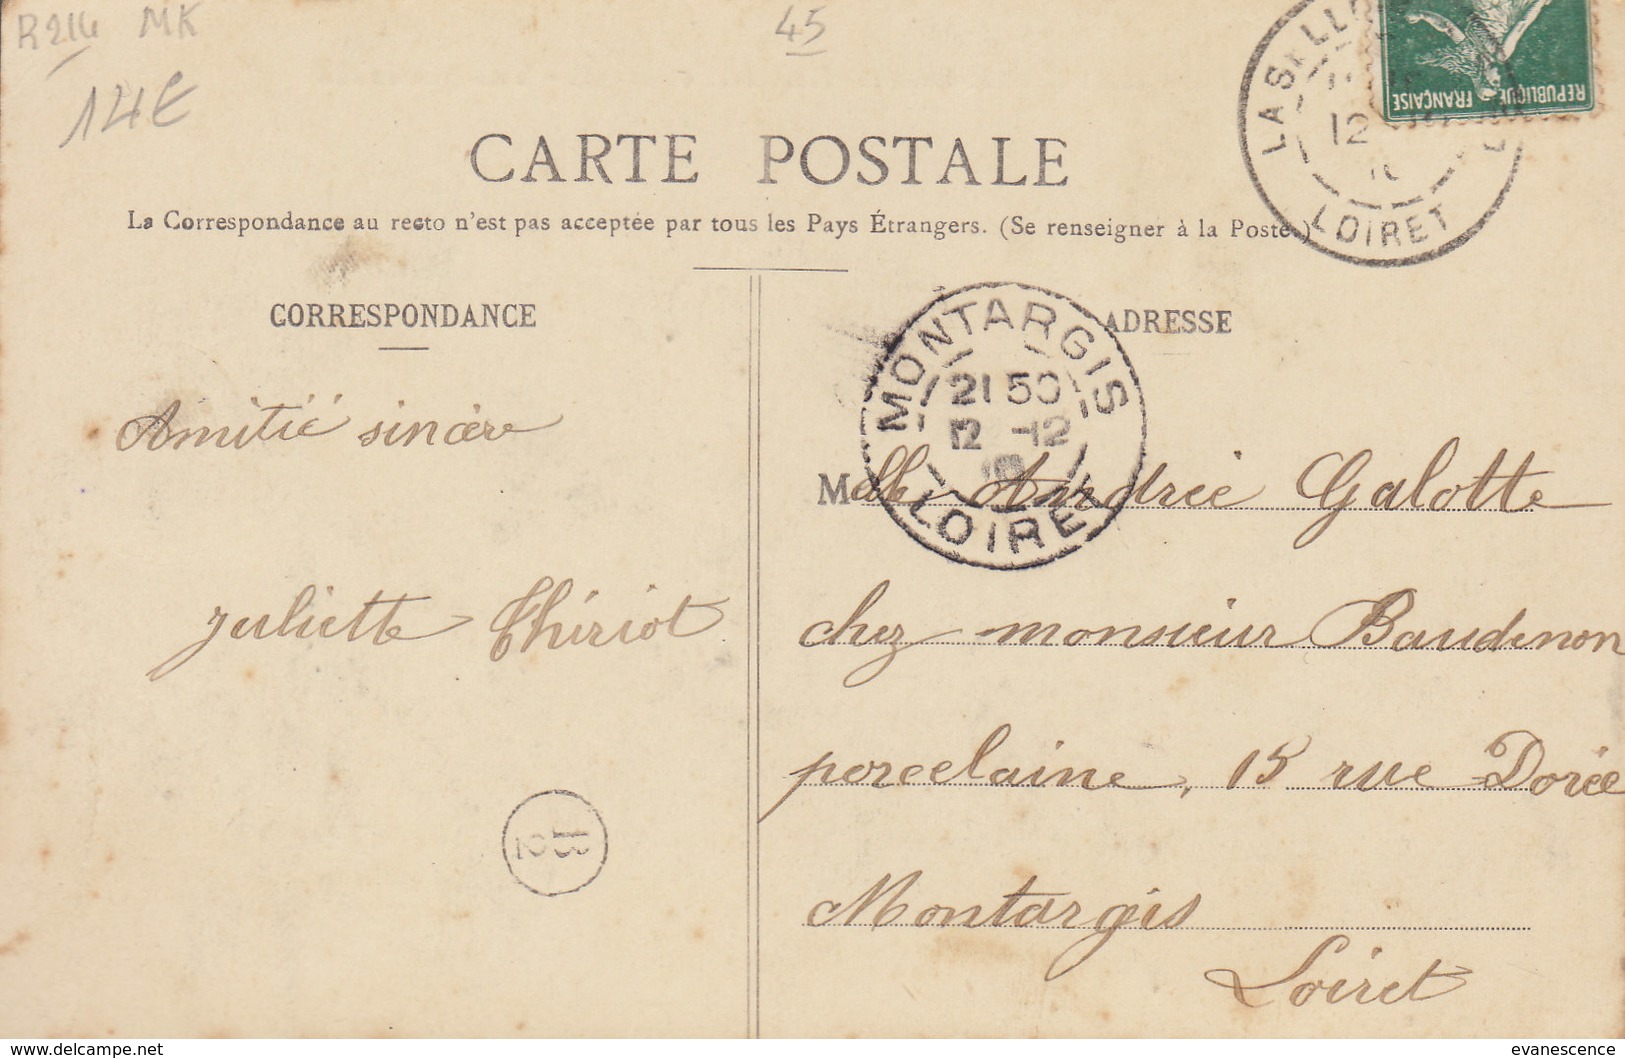 R214 MK
45
14€
REPUBLIQUE FRANÇAISE
LOIRET
12
CARTE POSTALE
La Correspondance au recto n'est pas acceptée par tous les Pays Étrangers. (Se renseigner à la Poste.)
CORRESPONDANCE
ADRESSE
MONTARGIS
21 50
12 -12
LOIRET
Amitié sincère
Juliette Thiriot
Melle Andrée Galotte
chez monsieur Baudenon
porcelaine, 15 rue Dorée
Montargis
Loiret
delcampe.net
evanescence